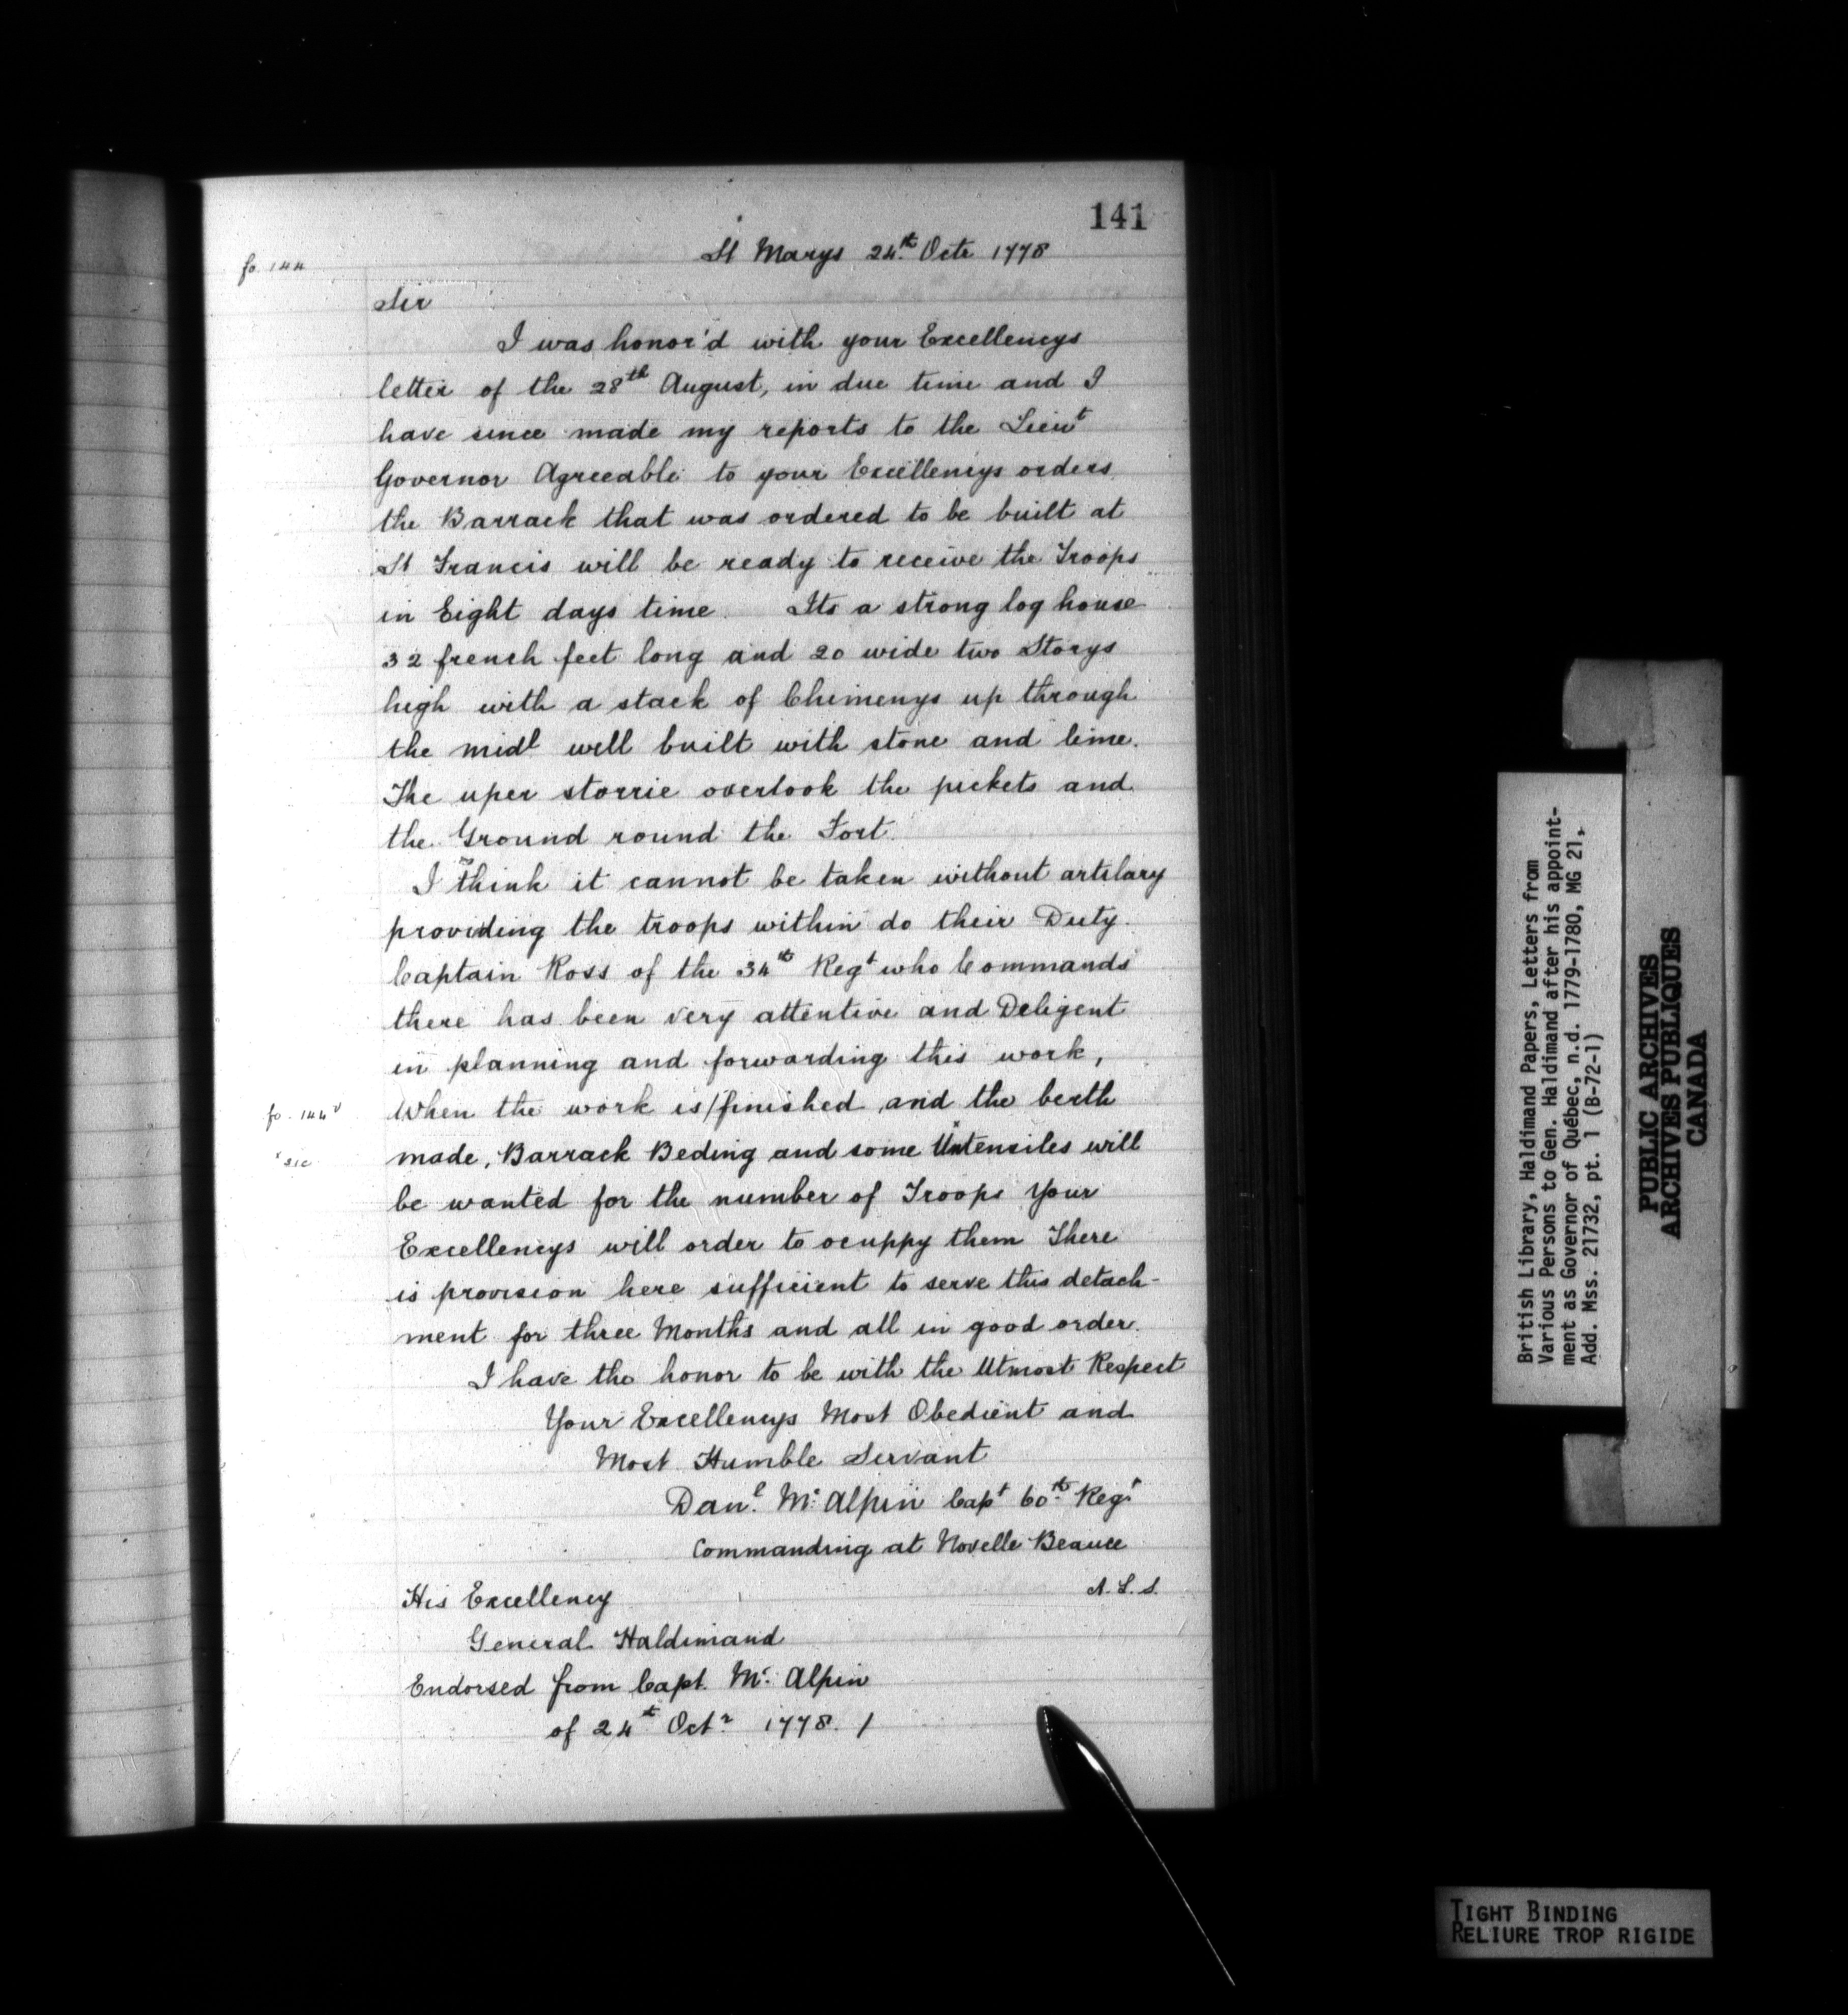 141
fo. 144
St Marys 24th Octr 1778
Sir
I was honor'd with your Excellencys
letter of the 28th August, in due time and I
have since made my reports to the Lieut
Governor Agreeable to your Excellencys orders
the Barrack that was ordered to be built at
St Francis will be ready to receive the Troops
in Eight days time. Its a strong log house
32 french feet long and 20 wide two Storys
high with a stack of Chimenys up through
the midl well built with stone and lime.
The uper storrie overlook the pickets and
the Ground round the Fort.
I think it cannot be taken without artilary
providing the troops within do their Duty.
Captain Ross of the 34th Regt who Commands
there has been very attentive and Deligent
in planning and forwarding this work,
fo. 144v When the work is/finished and the berth
x sic made, Barrack Beding and some Untensiles will
be wanted for the number of Troops your
Excellencys will order to ocuppy them There
is provision here sufficient to serve this detach-
ment for three Months and all in good order.
I have the honor to be with the Utmost Respect
Your Excellencys Most Obedient and
Most Humble Servant
Danl. Mc Alpin Capt 60th Regt
Commanding at Novelle Beauce
A. L. S.
His Excellency
General Haldimand
Endorsed from Capt. Mc Alpin
of 24th Octr 1778. /
British Library, Haldimand Papers, Letters from
Various Persons to Gen. Haldimand after his appoint-
ment as Governor of Québec, n.d. 1779-1780, MG 21,
Add. Mss. 21732, pt. 1 (B-72-1)
PUBLIC ARCHIVES
ARCHIVES PUBLIQUES
CANADA
TIGHT BINDING
RELIURE TROP RIGIDE